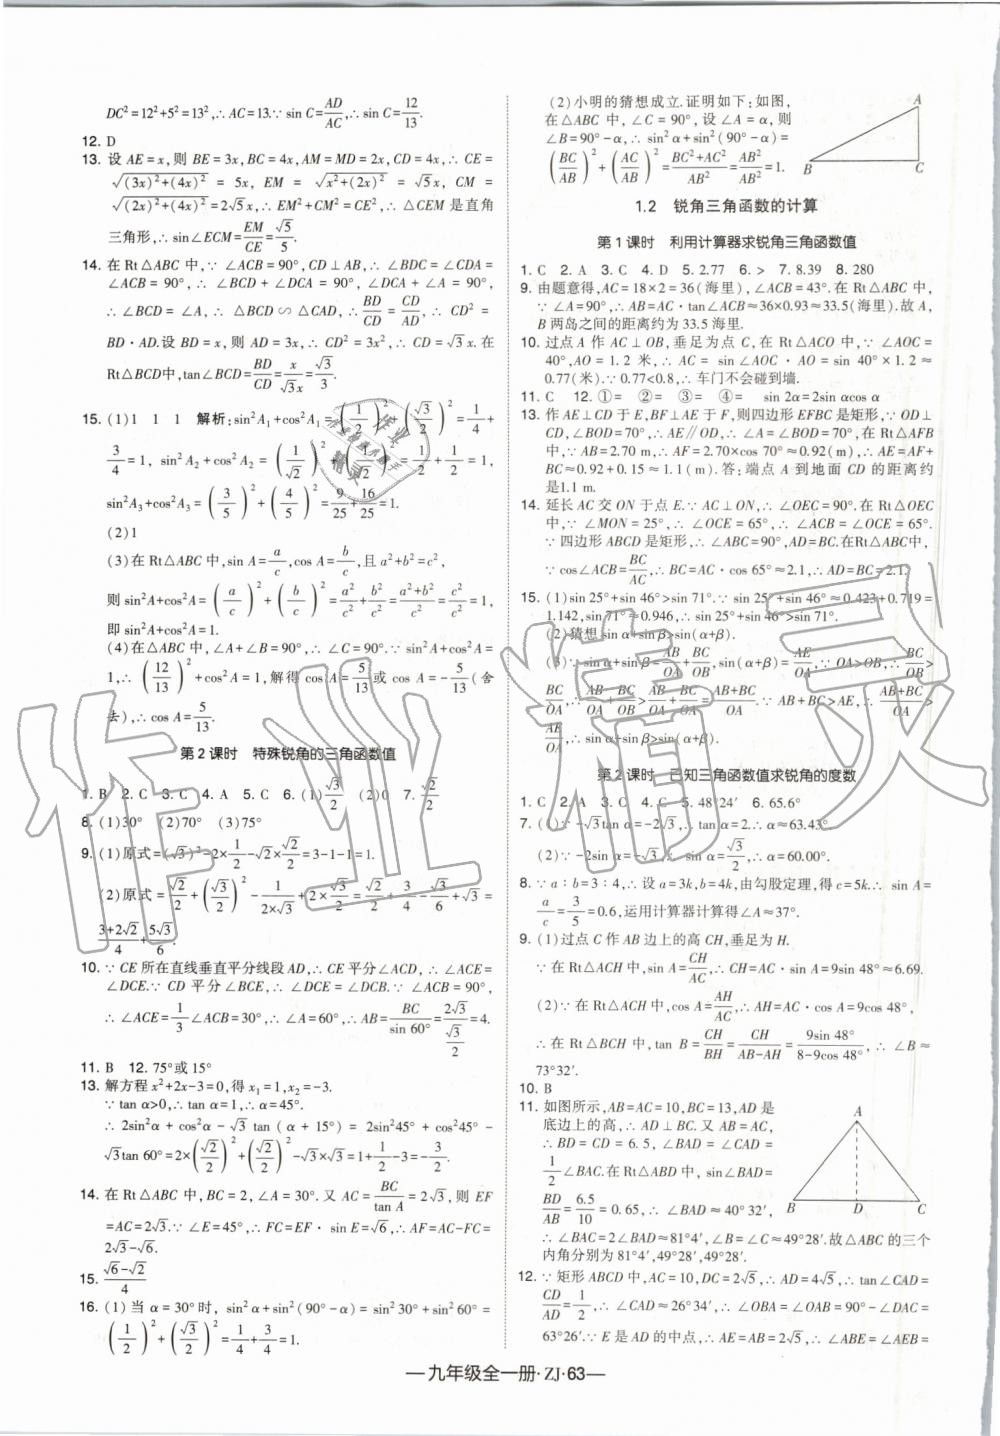 DC²=12²+5²=13²,∴AC=13.∵sin C=AD/AC,∴sin C=12/13.
12. D
13. 设 AE=x,则 BE=3x,BC=4x,AM=MD=2x,CD=4x,∴CE=
√((3x)²+(4x)²) = 5x, EM = √(x²+(2x)²) = √5x, CM =
√((2x)²+(4x)²)=2√5x,∴EM²+CM²=CE²,∴△CEM 是直角
三角形,∴sin∠ECM=EM/CE=√5/5.
14. 在 Rt△ABC 中,∵∠ACB=90°,CD⊥AB,∴∠BDC=∠CDA=
∠ACB = 90°, ∴ ∠BCD + ∠DCA = 90°, ∠DCA + ∠A = 90°,
∴∠BCD=∠A, ∴△BCD∽△CAD, ∴BD/CD=CD/AD, ∴CD²=
BD·AD. 设 BD=x, 则 AD=3x,∴CD²=3x²,∴CD=√3x. 在
Rt△BCD中,tan∠BCD=BD/CD=x/(√3x)=√3/3.
15. (1)1 1 1 解析:sin²A₁+cos²A₁=(1/2)²+(√3/2)²=1/4+
3/4=1, sin²A₂+cos²A₂=(1/√2)²+(1/√2)²=1/2+1/2=1,
sin²A₃+cos²A₃=(3/5)²+(4/5)²=9/25+16/25=1.
(2)1
(3)在 Rt△ABC 中,sin A=a/c,cos A=b/c,且 a²+b²=c²,
则 sin²A+cos²A=(a/c)²+(b/c)²=a²/c²+b²/c²=(a²+b²)/c²=c²/c²=1,
即 sin²A+cos²A=1.
(4)在△ABC 中,∠A+∠B=90°,∴∠C=90°.∵sin²A+cos²A=
1,∴(12/13)²+cos²A=1,解得 cos A=5/13或 cos A=-5/13(舍
去),∴cos A=5/13.
第 2 课时 特殊锐角的三角函数值
1. B 2. C 3. C 4. A 5. C 6. (1)√3/2 (2)0 7. √2/2
8. (1)30° (2)70° (3)75°
9. (1)原式=(√3)²-2×1/2-√2×√2/2=3-1-1=1.
(2)原式=√2/2+(√3/2)²-1/(2×√3)+2×√3/2=
(3+2√2)/4+5√3/6.
10. ∵CE 所在直线垂直平分线段 AD,∴CE 平分∠ACD, ∴∠ACE=
∠DCE.∵CD 平分∠BCE,∴∠DCE=∠DCB.∵∠ACB=90°,
∴∠ACE=1/3∠ACB=30°,∴∠A=60°,∴AB=BC/sin 60°=2√3/(√3/2)=4.
11. B 12. 75°或15°
13. 解方程 x²+2x-3=0,得 x₁=1,x₂=-3.
∵tan α>0,∴tan α=1,∴α=45°.
∴2sin²α + cos²α - √3 tan (α + 15°) = 2sin²45° + cos²45° -
√3tan 60°=2×(√2/2)²+(√2/2)²-√3×√3=1+1/2-3=-3/2.
14. 在 Rt△ABC 中,BC=2,∠A=30°.又 AC=BC/tan A=2√3,则 EF
=AC=2√3.∵∠E=45°,∴FC=EF·sin E=√6,∴AF=AC-FC=
2√3-√6.
15. (√6-√2)/4
16. (1)当 α=30°时, sin²α+sin²(90°-α)=sin²30°+sin²60°=
(1/2)²+(√3/2)²=1/4+3/4=1.
(2)小明的猜想成立.证明如下:如图,
在△ABC 中,∠C=90°,设∠A=α,则
∠B=90°-α,∴sin²α+sin²(90°-α)=
(BC/AB)²+(AC/AB)²=(BC²+AC²)/AB²=AB²/AB²=1.
A
B
C
1.2 锐角三角函数的计算
第 1 课时 利用计算器求锐角三角函数值
1. C 2. A 3. C 4. D 5. 2.77 6. > 7. 8.39 8. 280
9. 由题意得,AC=18×2=36(海里),∠ACB=43°.在 Rt△ABC 中,
∵∠A=90°,∴AB=AC·tan∠ACB≈36×0.93≈33.5(海里).故 A,
B 两岛之间的距离约为 33.5 海里.
10. 过点 A 作 AC⊥OB,垂足为点 C,在 Rt△ACO 中,∵∠AOC=
40°,AO=1.2 米,∴AC=sin∠AOC·AO=sin 40°×1.2≈
0.77(米).∵0.77<0.8,∴车门不会碰到墙.
11. C 12. ①= ②= ③= ④= sin 2α=2sin αcos α
13. 作 AE⊥CD 于 E,BF⊥AE 于 F,则四边形 EFBC 是矩形,∵OD⊥
CD,∠BOD=70°,∴AE∥OD,∴∠A=∠BOD=70°.在 Rt△AFB
中,∵AB=2.7 m,∴AF=2.70×cos 70°≈0.92(m),∴AE=AF+
BC≈0.92+0.15≈1.1(m).答:端点 A 到地面 CD 的距离约
是1.1 m.
14. 延长 AC 交 ON 于点 E.∵AC⊥ON,∴∠OEC=90°.在 Rt△OEC
中,∵∠MON=25°,∴∠OCE=65°,∴∠ACB=∠OCE=65°.
∵四边形 ABCD 是矩形,∴∠ABC=90°,AD=BC.在Rt△ABC中,
∵cos∠ACB=BC/AC,∴BC=AC·cos 65°≈2.1,∴AD=BC≈2.1.
15. (1)sin 25°+sin 46°>sin 71°.∵sin 25°+sin 46°≈0.423+0.719=
1.142,sin 71°≈0.946,∴sin 25°+sin 46°>sin 71°.
(2)猜想 sin α+sin β>sin(α+β).
(3)∵sin α+sin β=AB/OA+BC/OB,sin(α+β)=AE/OA,∵OA>OB,∴BC/OB>
BC/OA,∴AB/OA+BC/OB>AB/OA+BC/OA=(AB+BC)/OA.∵AB+BC>AE,∴(AB+BC)/OA>
AE/OA,∴sin α+sin β>sin(α+β).
第 2 课时 已知三角函数值求锐角的度数
1. C 2. A 3. C 4. C 5. 48°24′ 6. 65.6°
7. (1)∵-√3tan α=-2√3,∴tan α=2.∴α≈63.43°.
(2)∵-2sin α=-√3,∴sin α=√3/2,∴α=60.00°.
8. ∵a∶b=3∶4,∴设 a=3k,b=4k,由勾股定理,得 c=5k.∴sin A=
a/c=3/5=0.6,运用计算器计算得∠A≈37°.
9. (1)过点 C 作 AB 边上的高 CH,垂足为 H.
∵在 Rt△ACH 中,sin A=CH/AC,∴CH=AC·sin A=9sin 48°≈6.69.
(2)∵在 Rt△ACH 中,cos A=AH/AC,∴AH=AC·cos A=9cos 48°,
∴在 Rt△BCH 中,tan B=CH/BH=CH/(AB-AH)=9sin 48°/(8-9cos 48°),∴∠B≈
73°32′.
10. B
11. 如图所示,AB=AC=10,BC=13,AD 是
底边上的高,∴AD⊥BC.又 AB=AC,
∴BD=CD=6.5, ∠BAD=∠CAD=
1/2∠BAC.在 Rt△ABD 中, sin∠BAD=
BD/AB=6.5/10=0.65, ∴∠BAD≈40°32′,
∴∠BAC=2∠BAD≈81°4′,∠B=∠C≈49°28′.故△ABC 的三个
内角分别为 81°4′,49°28′,49°28′.
A
B
D
C
12. ∵矩形 ABCD 中,AC=10,DC=2√5,∴AD=4√5,∴tan∠CAD=
CD/AD=1/2,∴∠CAD≈26°34′,∴∠OBA=∠OAB=90°-∠DAC=
63°26′.∵E 是 AD 的中点,∴AE=AB=2√5,∴∠ABE=∠AEB=
九年级全一册·ZJ·63
作业精灵